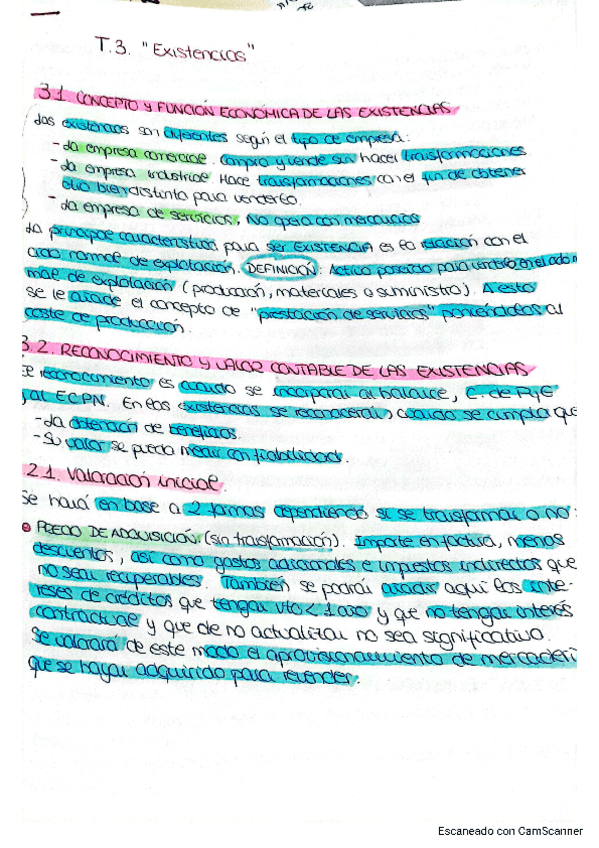 T.3. "Existencias"
3.1 CONCEPTO Y FUNCIÓN ECONÓMICA DE LAS EXISTENCIAS
Las existencias son diferentes según el tipo de empresa:
- La empresa comercial. Compra y vende sin hacer transformaciones
- La empresa industrial. Hace transformaciones con el fin de obtener
otro bien distinto para venderlo.
- La empresa de servicios. No opera con mercancías
La principal característica para ser EXISTENCIA es la relación con el
ciclo normal de explotación. DEFINICIÓN: Activo poseído para venderlo en el
mal de explotación (producción, materiales o suministro). A esto
se le añade el concepto de "prestación de servicios" poniéndolos al
coste de producción.
3.2. RECONOCIMIENTO Y VALOR CONTABLE DE LAS EXISTENCIAS
reconocimiento es cuando se incorpora al balance, C. de PyG
al ECPN. En las existencias se reconocerán cuando se cumpla que
- La obtención de beneficios.
- Su valor se pueda medir con fiabilidad.
2.1. Valoración inicial.
Se hará en base a 2 formas dependiendo si se transforma o no:
PRECIO DE ADQUISICIÓN (sin transformación). Importe en factura, menos
descuentos, así como gastos adicionales e impuestos indirectos que
no sean recuperables. También se podrá añadir aquí los inte-
reses de créditos que tengan vto < 1 año y que no tengan interés
contractual y que de no actualizar no sea significativo.
Se valorará de este modo el aprovisionamiento de mercaderí
que se hayan adquirido para revender.
Escaneado con CamScanner